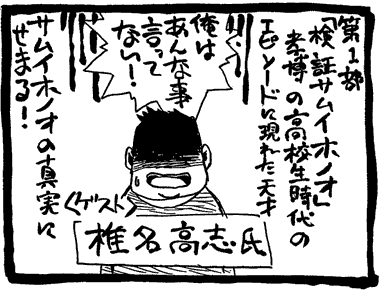 第1部
「検証サムイホノオ」
孝博の高校生時代の
エピソードに現れた天才
俺は
あんな事
言って
ない!
サムイホノオの真実に
せまる!
〈ゲスト〉
椎名高志氏